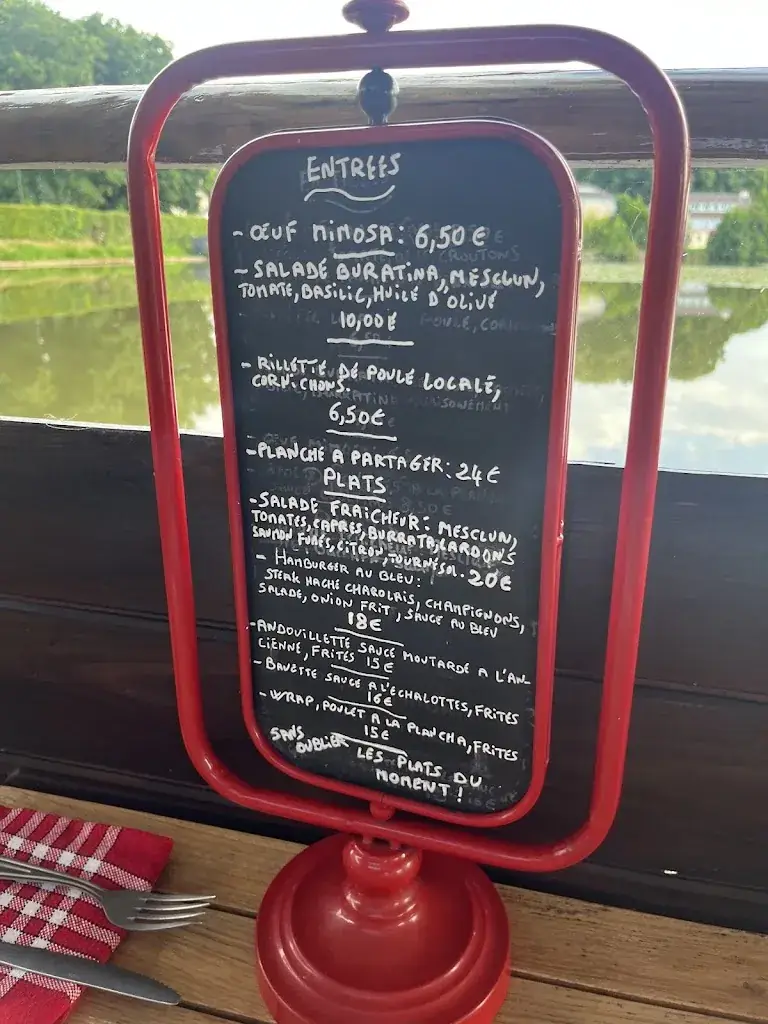 ENTREES
- OEUF MIMOSA: 6,50€
- SALADE BURATINA, MESCLUN,
TOMATE, BASILIC, HUILE D'OLIVE
10,00€
- RILLETTE DE POULE LOCALE,
CORNICHONS.
6,50€
- PLANCHE A PARTAGER: 24€
PLATS
- SALADE FRAICHEUR: MESCLUN,
TOMATES, CAPRES, BURRATA, LARDONS
SAUMON FUMÉS, CITRON, TOURNESOL. 20€
- HAMBURGER AU BLEU:
STEAK HACHÉ CHAROLAIS, CHAMPIGNONS,
SALADE, ONION FRIT, SAUCE AU BLEU
18€
- ANDOUILLETTE SAUCE MOUTARDE A L'AN-
CIENNE, FRITES 15€
- BAVETTE SAUCE A L'ECHALOTTES, FRITES
16€
- WRAP, POULET A LA PLANCHA, FRITES
15€
SANS
OUBLIER LES PLATS DU
MOMENT!